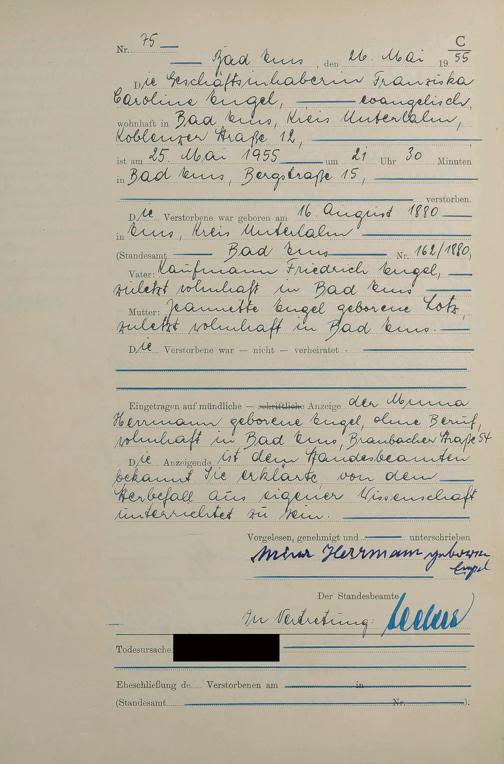 C
Nr. 75
Bad Ems, den 26. Mai 1955
Die Geschäftsinhaberin Franziska
Caroline Engel, evangelisch,
wohnhaft in Bad Ems, Kreis Unterlahn,
Koblenzer Straße 12,
ist am 25. Mai 1955 um 21 Uhr 30 Minuten
in Bad Ems, Bergstraße 15,
verstorben.
Die Verstorbene war geboren am 16. August 1880
in Ems, Kreis Unterlahn
(Standesamt Bad Ems Nr. 162/1880,
Vater: Kaufmann Friedrich Engel,
zuletzt wohnhaft in Bad Ems
Mutter: Jeannette Engel geborene Lotz,
zuletzt wohnhaft in Bad Ems.
Die Verstorbene war — nicht — verheiratet
Eingetragen auf mündliche — schriftliche Anzeige der Minna
Herrmann geborene Engel, ohne Beruf,
wohnhaft in Bad Ems, Braubacher Straße 54
Die Anzeigende ist dem Standesbeamten
bekannt Sie erklärte, von dem
Sterbefall aus eigener Wissenschaft
unterrichtet zu sein.
Vorgelesen, genehmigt und unterschrieben
Minna Herrmann geborene
Engel
Der Standesbeamte
In Vertretung:
Todesursache:
Eheschließung de... Verstorbenen am in
(Standesamt Nr. ).